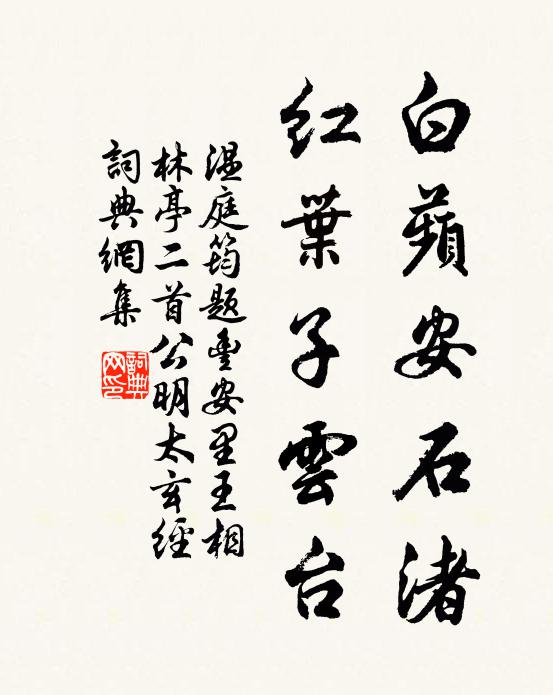 白蘋安石渚
紅葉子雲台
温庭筠題豊安里王相
林亭二首公明太玄經
詞典網集
詞典
网印